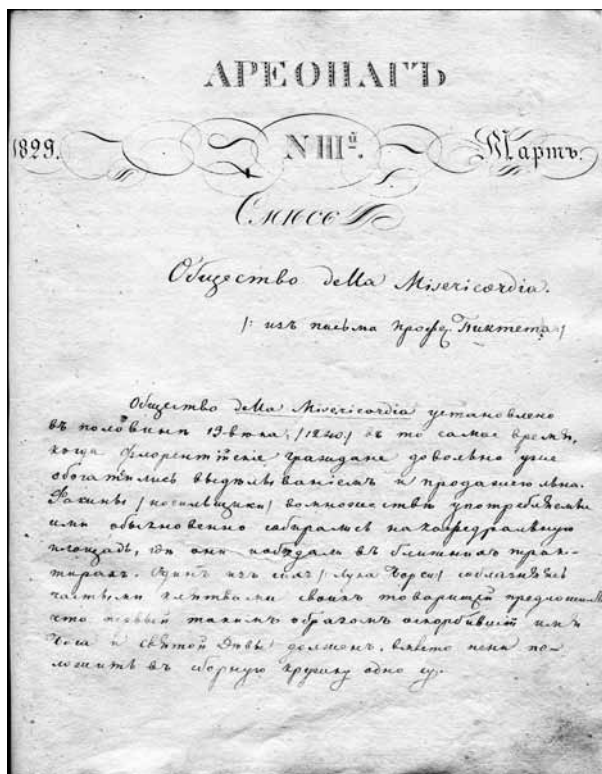 АРЕОПАГЪ
1829. N III й. Мартъ.
Смѣсь
Общество della Misericordia.
/: изъ письма проф. Пиктета :/
Общество della Misericordia установлено
въ половинѣ 13 вѣка, /1240/ въ то самое время,
когда Флорентійскіе граждане довольно уже
обогатились выдѣлываніемъ и продажею льна.
Факины /носильщики/ во множествѣ употребляемые
ими обыкновенно собирались на кафедральную
площадь, гдѣ они побѣдали въ ближнихъ трак-
тирахъ. Одинъ изъ сихъ /Лука Борси/ соблазняясь
частыми клятвами своихъ товарищей предложилъ
что всякъ такимъ образомъ оскорбившій имя
Бога и святой Дѣвы долженъ, вмѣсто пени по-
ложить въ сборную кружку одно су.